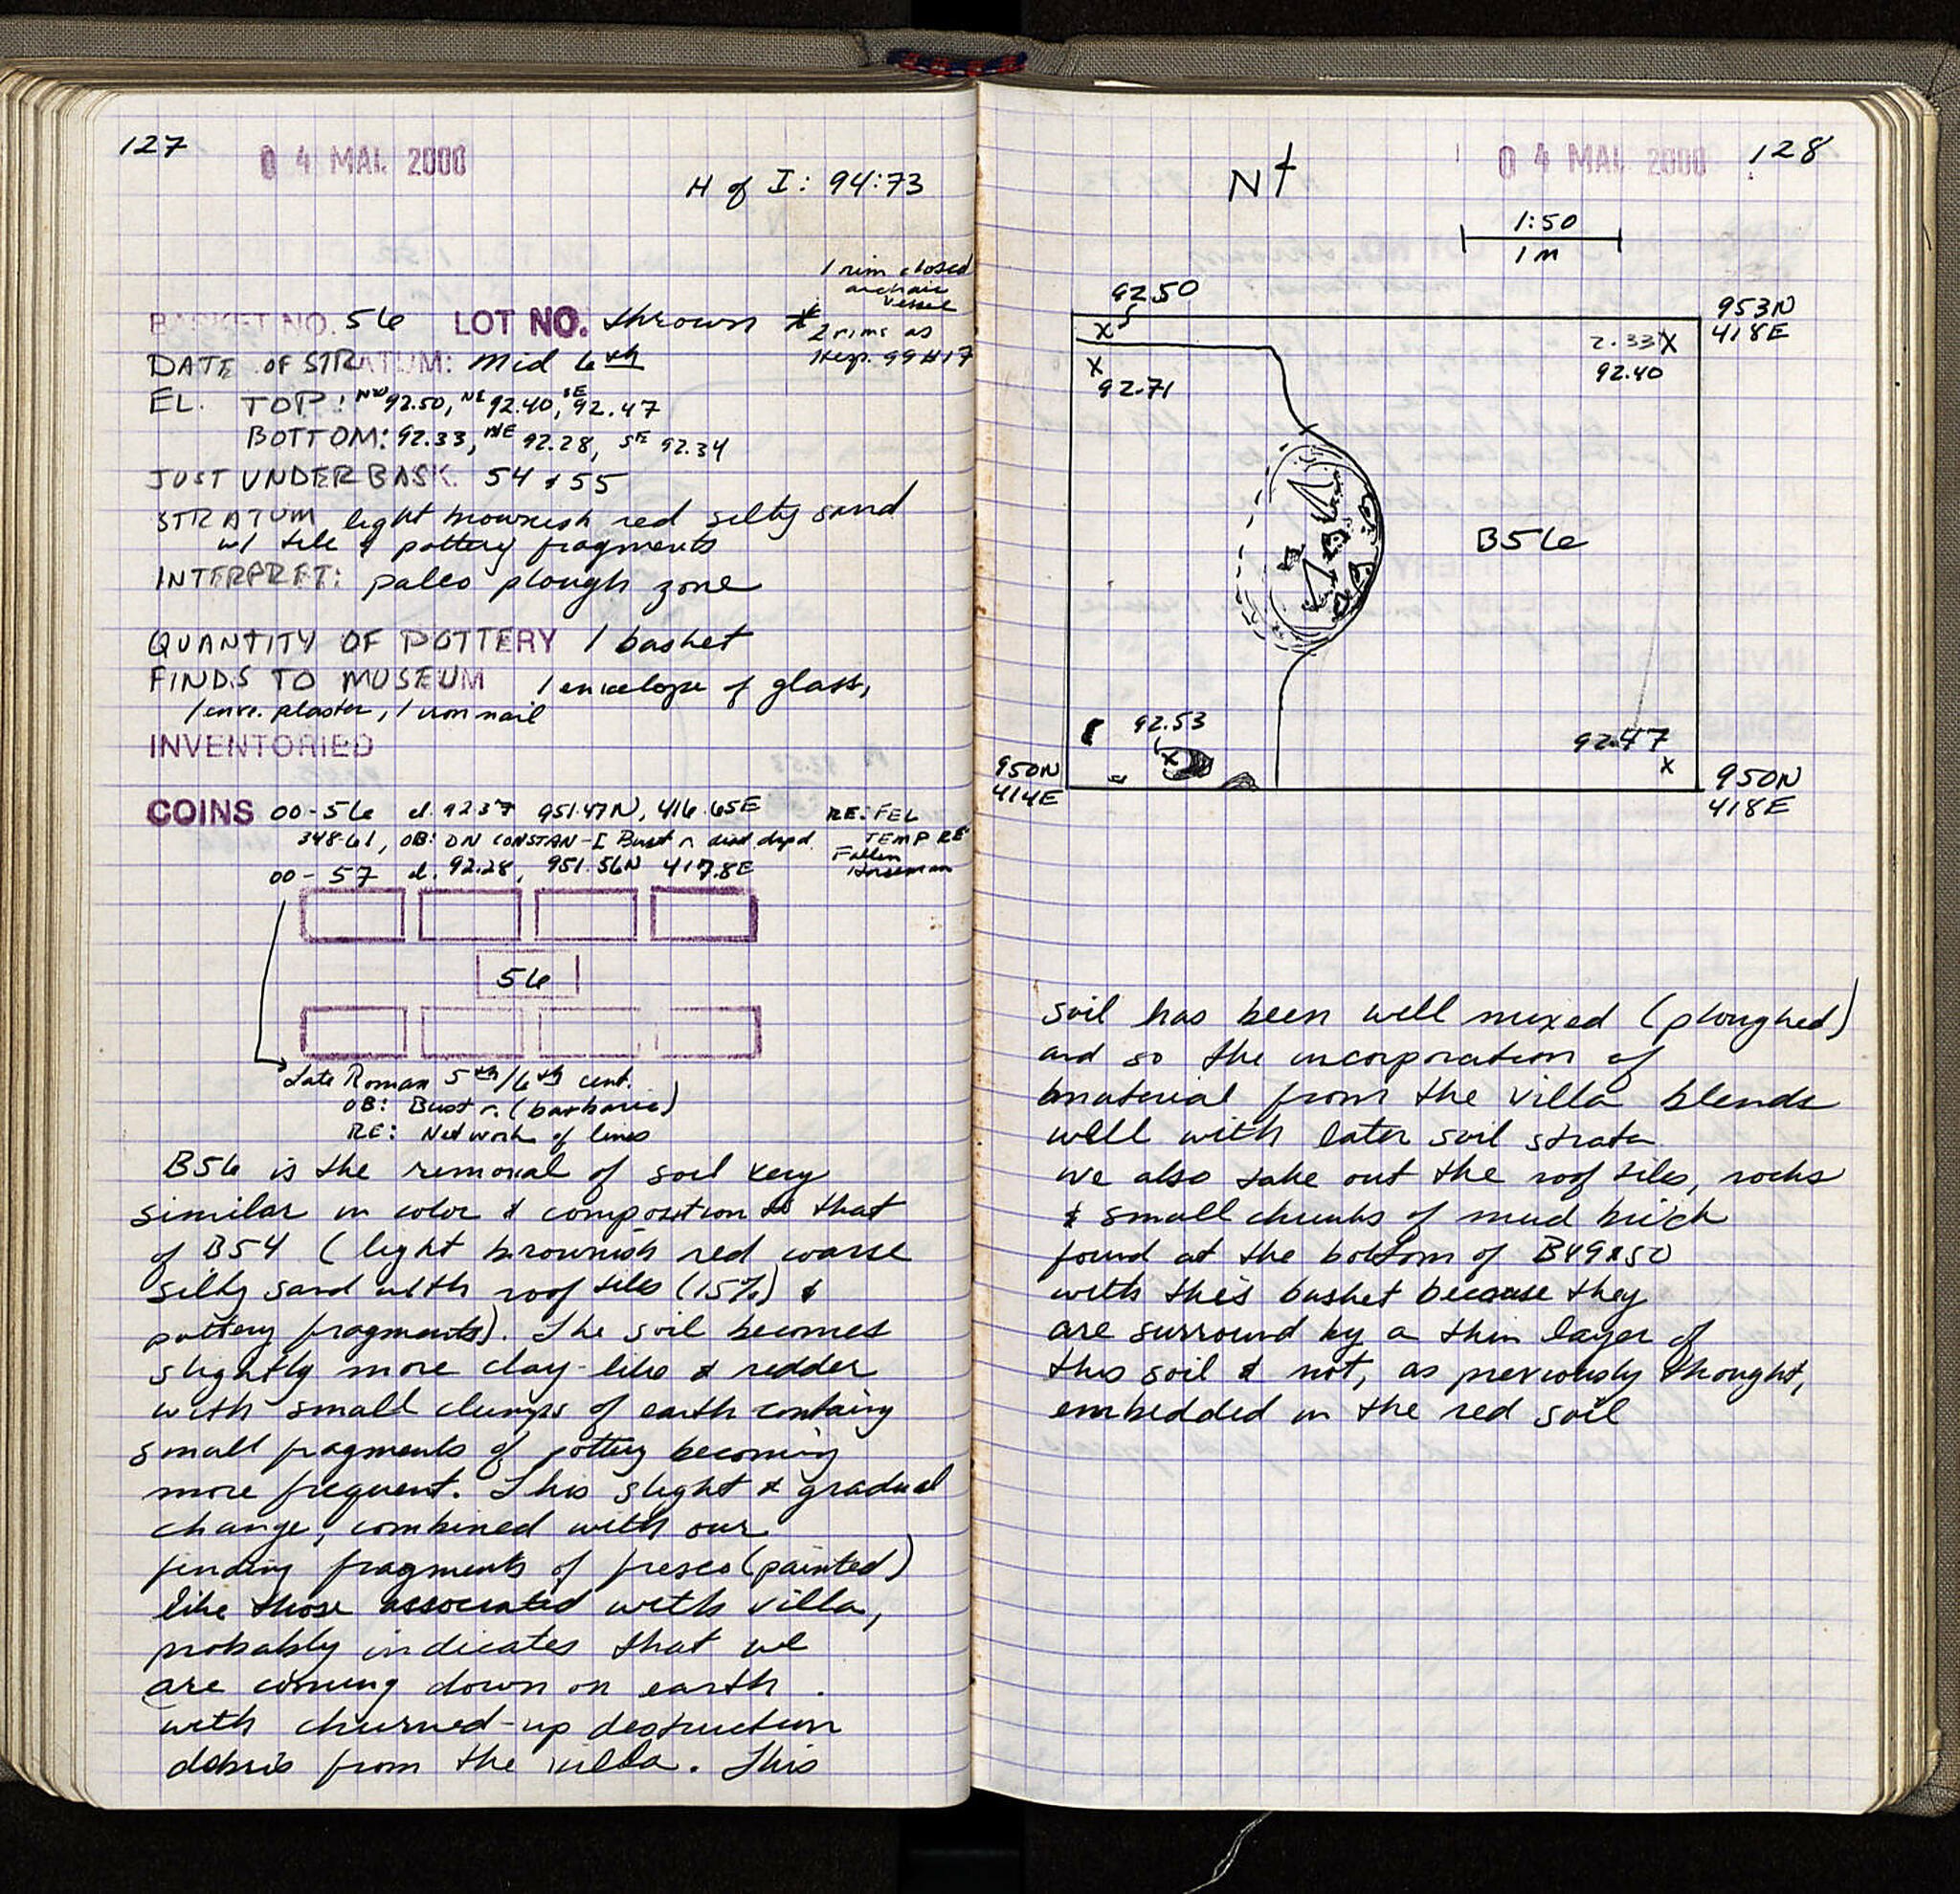 127
0 4 MAI. 2000
H of I: 94:73
1 rim closed
archaic
vessel
BASKET NO. 56 LOT NO. thrown *
2 rims as
Hesp. 99 #17
DATE OF STRATUM: Mid 6th
EL. TOP: NW 92.50, NE 92.40, SE 92.47
BOTTOM: 92.33, NE 92.28, SE 92.34
JUST UNDER BASK. 54 & 55
STRATUM light brownish red silty sand
w/ tile & pottery fragments
INTERPRET: paleo plough zone
QUANTITY OF POTTERY 1 basket
FINDS TO MUSEUM 1 envelope of glass,
1 env. plaster, 1 iron nail
INVENTORIED
COINS 00-56 el. 92.37 951.47N, 416.65E
RE: FEL
TEMP RE
Fallen
Horseman
348-61, OB: DN CONSTAN-I Bust r. diad drpd.
00-57 el. 92.28, 951.56N 417.8E
56
Late Roman 5th/6th cent.
OB: Bust r. (barbaric)
RE: Network of lines
B56 is the removal of soil very
similar in color & composition to that
of B54 (light brownish red coarse
silty sand with roof tiles (15%) &
pottery fragments). The soil becomes
slightly more clay-like & redder
with small clumps of earth containg
small fragments of pottery becoming
more frequent. This slight & gradual
change, combined with our
finding fragments of fresco (painted)
like those associated with villa,
probably indicates that we
are coming down on earth
with churned-up destruction
debris from the villa. This
0 4 MAI. 2000
128
N
1:50
1 M
92.50
X
X
92.71
953N
418E
2.33 X
92.40
B56
92.53
X
92.47
X
950N
414E
950N
418E
soil has been well mixed (ploughed)
and so the incorporation of
material from the villa blends
well with later soil strata
We also take out the roof tiles, rocks
& small chunks of mud brick
found at the bottom of B49&50
with this basket because they
are surround by a thin layer of
this soil & not, as previously thought,
embedded in the red soil